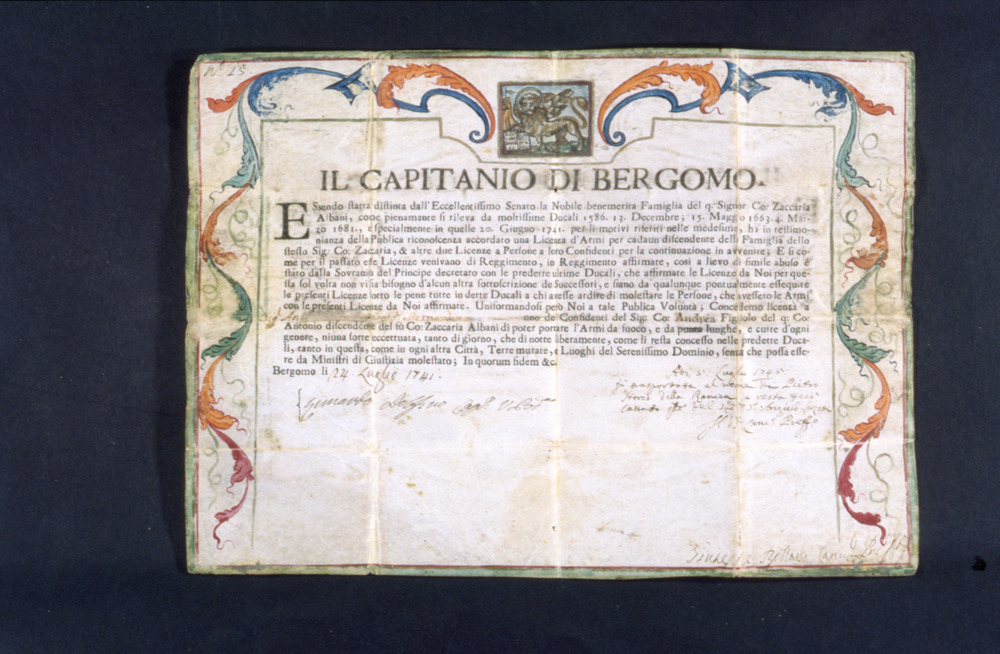 N° 25
IL CAPITANIO DI BERGOMO.
ESsendo stata distinta dall' Eccellentissimo Senato la Nobile benemerita Famiglia del q. Signor Co: Zaccaria
Albani, come pienamente si rileva da moltissime Ducali 1586. 13. Decembre; 15. Maggo 1663. 4. Mar-
zo 1681., e specialmente in quelle 20. Giugno 1741. per li motivi riferiti nelle medesime, hà in testimo-
nianza della Publica riconoscenza accordato una Licenza d'Armi per cadaun discendente della Famiglia dello
stesso Sig. Co: Zaccaria, & altre due Licenze a Persone a loro Confidenti per la continuazione in avvenire; E sì co-
me per il passato esse Licenze venivano di Reggimento, in Reggimento affirmate, così a lievo di simile abuso è
stato dalla Sovranità del Principe decretato con le predette ultime Ducali, che affirmate le Licenze da Noi per que-
sta sol volta non vi sia bisogno d'alcun altra sottoscrizione de Successori, e siano da qualunque pontualmente essequite
le presenti Licenze sotto le pene tutte in dette Ducali a chi avesse ardire di molestare le Persone, che avessero le Armi
con le presenti Licenze da Noi affirmate. Uniformandosi però Noi a tale Publica Volontà; Concedemo licenza a
uno de Confidenti del Sig. Co: Andrea Figliolo del q: Co:
Antonio discendente del fù Co: Zaccaria Albani di poter portare l'Armi da fuoco, e da punto lunghe, e curte d'ogni
genere, niuna sorte eccettuata, tanto di giorno, che di notte liberamente, come li resta concesso nelle predette Duca-
li, tanto in questa, come in ogni altra Città, Terre murate, e Luoghi del Serenissimo Dominio, senza che possa esse-
re da Ministri di Giustizia molestato; In quorum fidem &c.
Bergomo li 24 Luglio 1741.
Dolfino Cap.